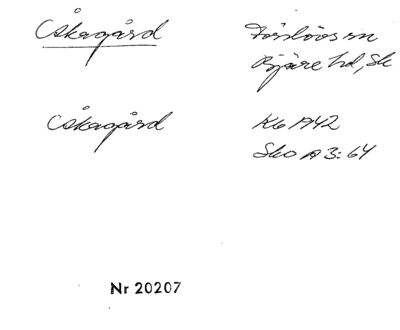 Åkagård
Förslövs sn
Bjäre hd, Sk
Åkagård
KG 1942
Sko A3:64
Nr 20207